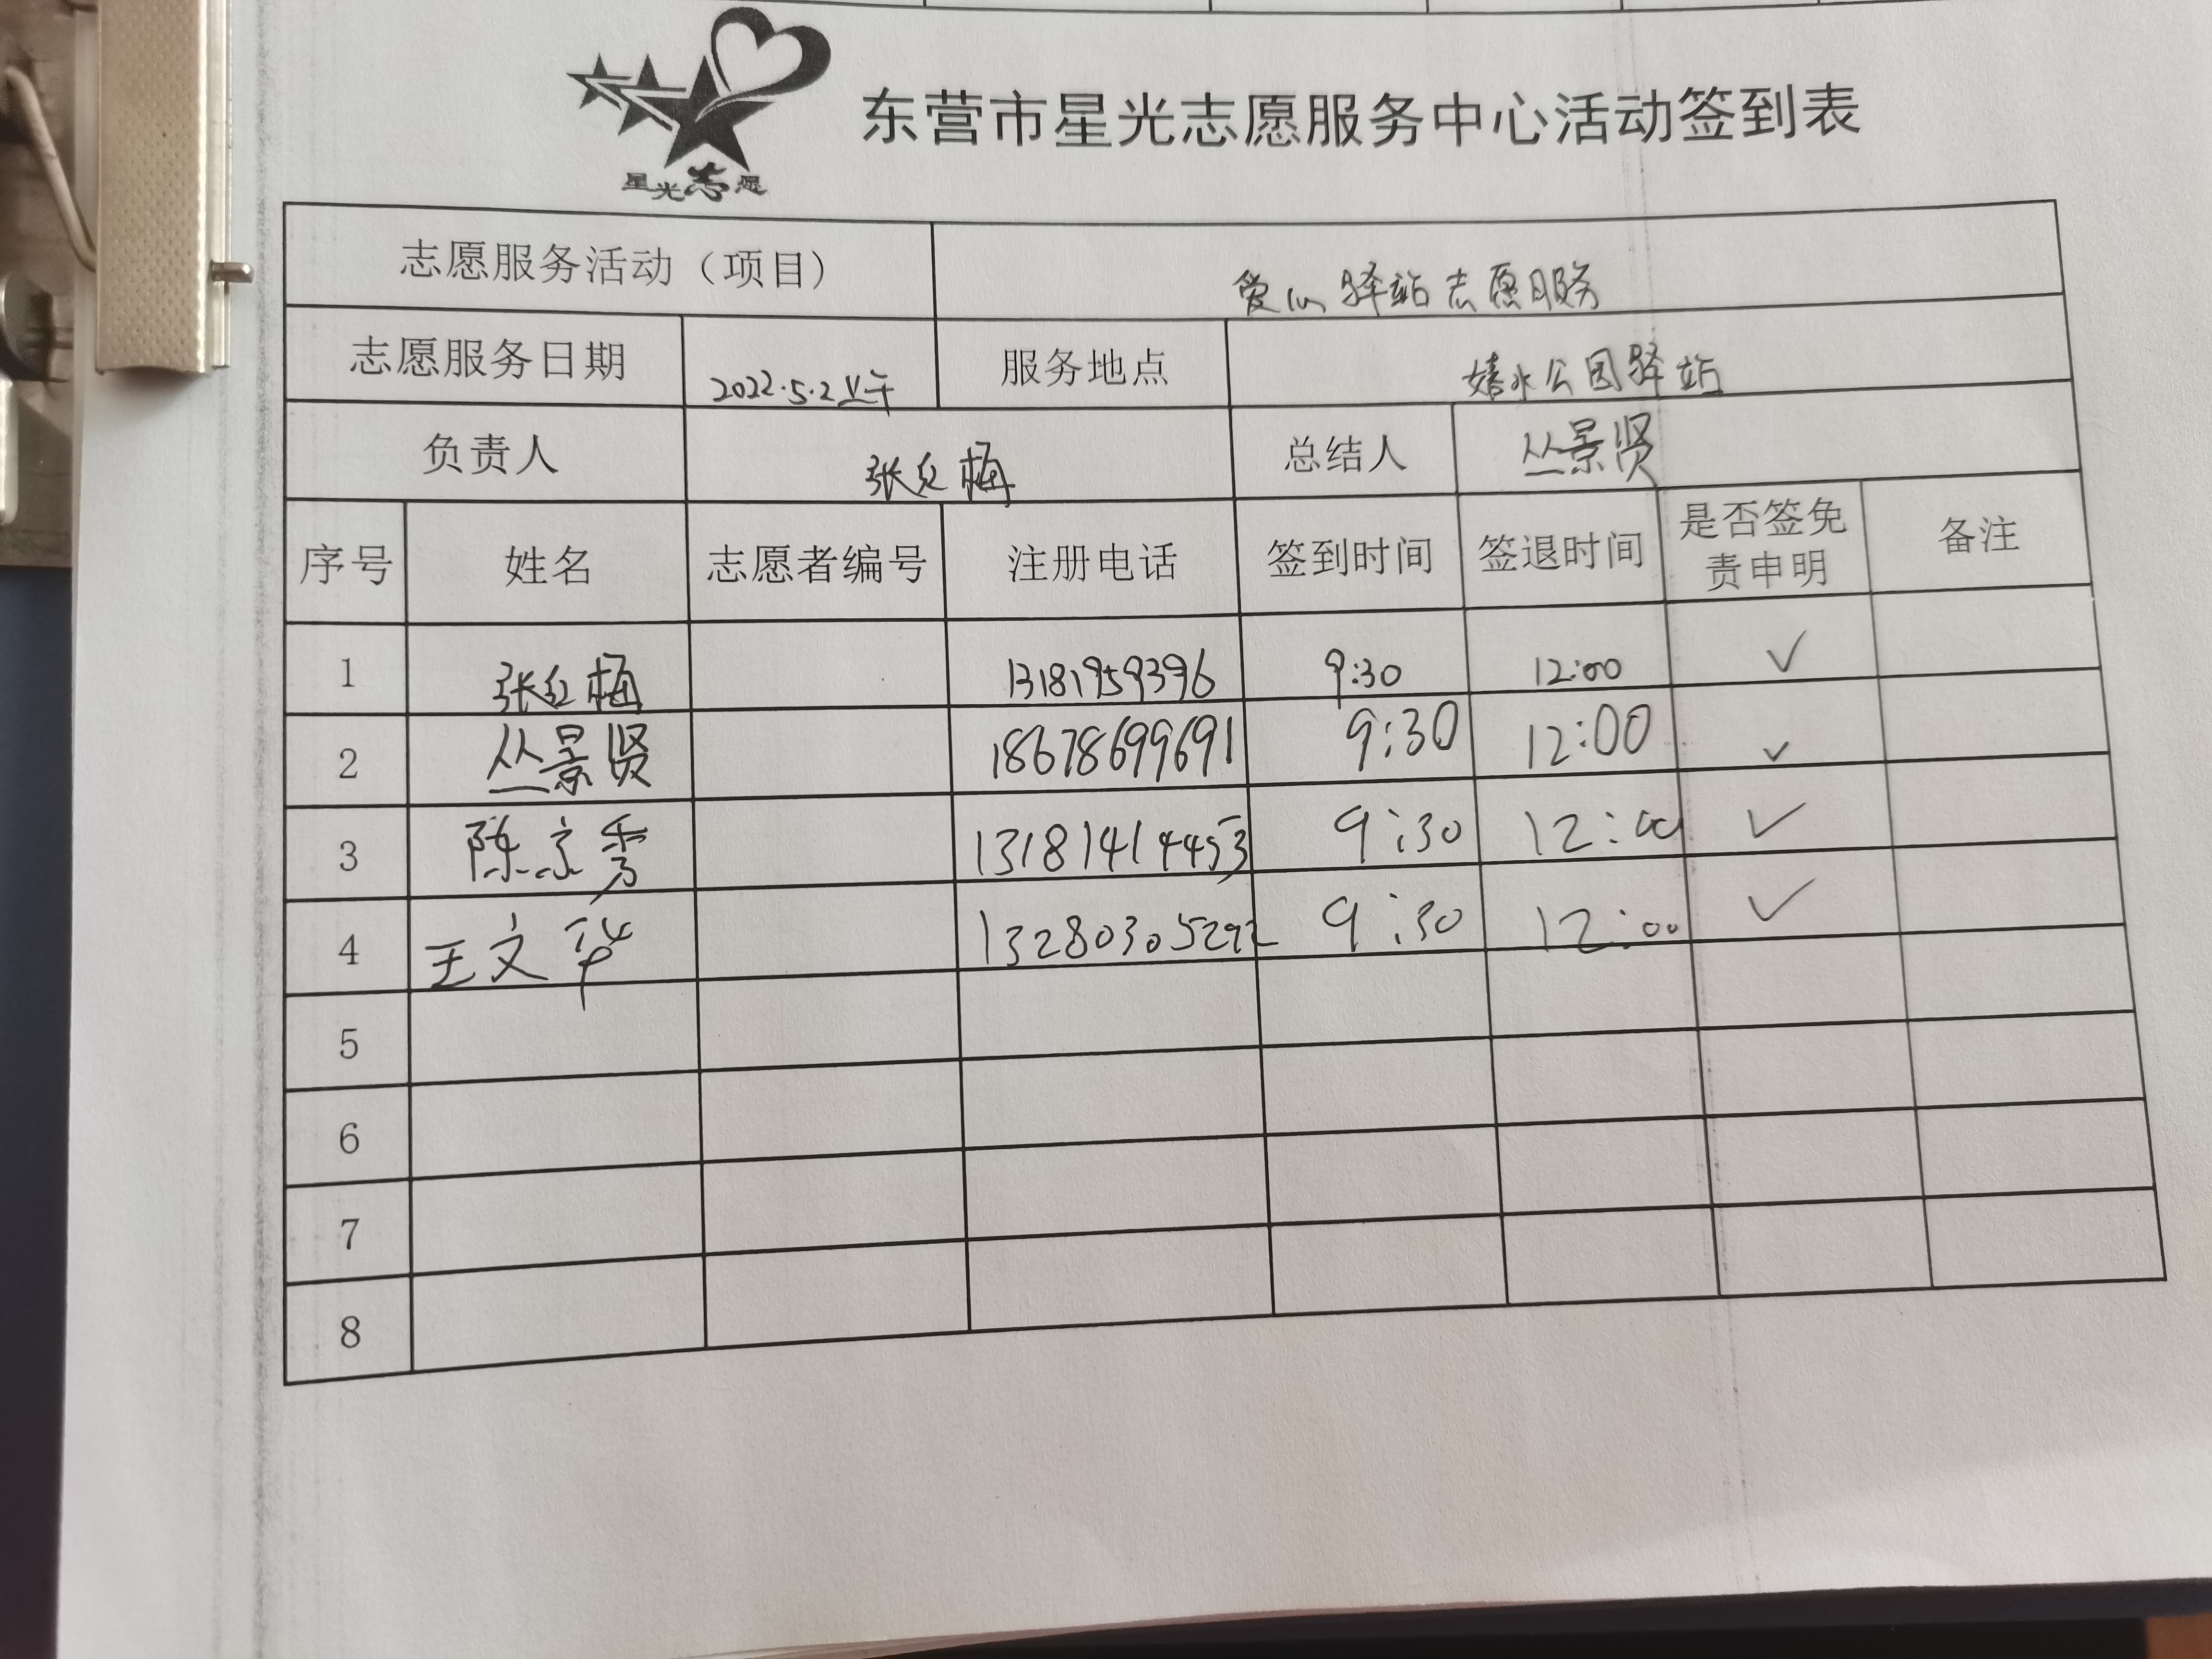 星光志愿
东营市星光志愿服务中心活动签到表
志愿服务活动（项目） 爱心驿站志愿服务
志愿服务日期 2022.5.2上午 服务地点 嬉水公园驿站
负责人 张红梅 总结人 丛景贤
序号 姓名 志愿者编号 注册电话 签到时间 签退时间 是否签免责申明 备注
1 张红梅 13181959396 9:30 12:00 ✓
2 丛景贤 18678699691 9:30 12:00 ✓
3 陈京秀 13181414453 9:30 12:00 ✓
4 王文华 13280305292 9:30 12:00 ✓
5
6
7
8